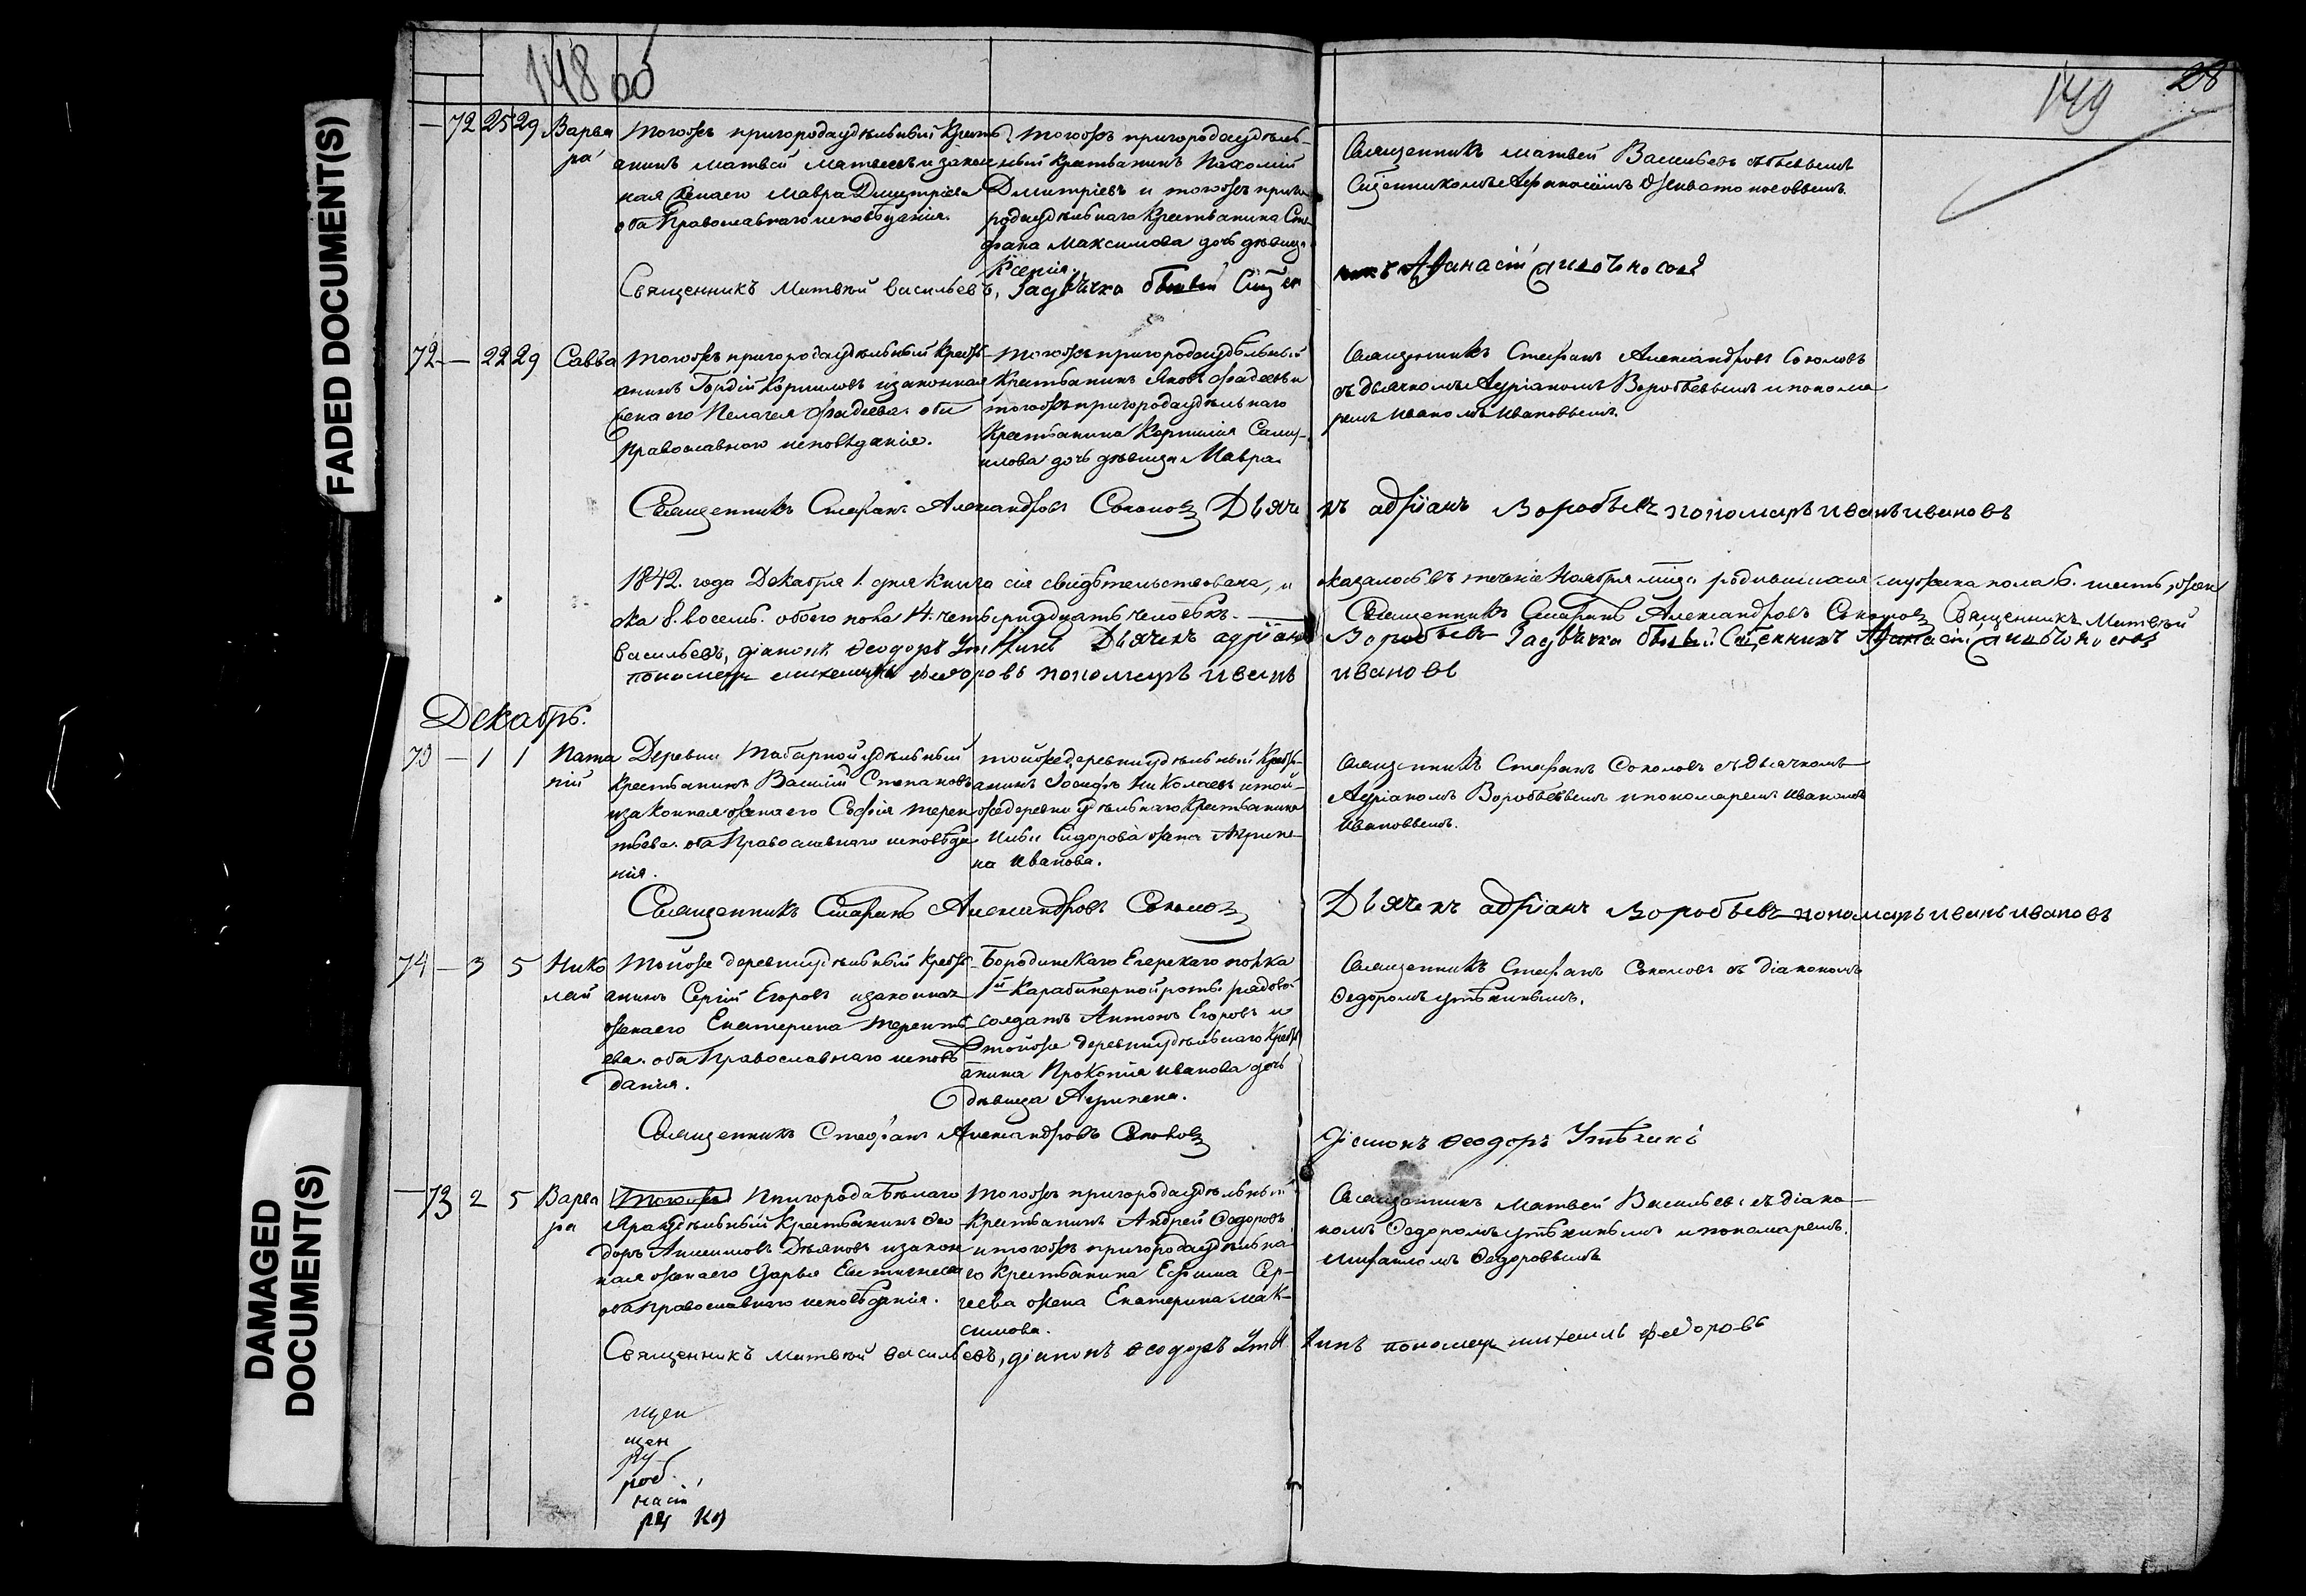 148 об
149
28
FADED DOCUMENT(S)
DAMAGED
DOCUMENT(S)
— 72 25 29 Варва
ра
Тогожъ пригорода удѣльный Кресть
янинъ Матвей Матвеевъ и закон
ная жена его Мавра Дмитріева
оба Православнаго исповѣданія.
Тогожъ пригорода удѣль-
ный Крестьянинъ Пахомій
Дмитріевъ и тогожъ приго
рода удѣльнаго Крестьянина Сте
фана Максимова дочь дѣвица
Ксенія.
Священникъ Матвей Васильевъ съ бывшимъ
Сщенникомъ Афанасіемъ
Священникъ Матвѣй Васильевъ, За дьячка бывый Сщен
никъ Афанасій
72 — 22 29 Савва
Тогожъ пригорода удѣльный Кресть
янинъ Гордій Корниловъ и законная
жена его Пелагея Фадеева оба
Православнаго исповѣданіе.
Тогожъ пригорода удѣльный
Крестьянинъ Яковъ Фадеевъ и
тогожъ пригорода удѣльнаго
Крестьянина Корнилія Саму-
илова дочь дѣвица Мавра
Священникъ Стефанъ Александровъ Соколовъ
съ дьячкомъ Адріаномъ Воробьевымъ и понома
ремъ Иваномъ Ивановымъ.
Священникъ Стефанъ Александровъ Соколовъ Дьяче
къ адріанъ Воробьевъ пономарь иванъ ивановъ
1842. года Декабря 1. дня Книга сія свидѣтельствована, и оказалось въ теченіе Ноября мца родившихся мужеска пола 6. шесть, жен
ска 8. восемь. обоего пола 14. четырнадцать человѣкъ. Священникъ Стефанъ Александровъ Соколовъ Священникъ Матвѣй
Васильевъ, діаконъ Ѳеодоръ Утѣхинъ Дьячекъ адріанъ Воробьевъ За дьячка бывый Сщенникъ Афанасій
пономарь михаилъ федоровъ пономарь иванъ ивановъ
Декабрь.
73 — 1 1 Пата
пій
Деревни Табарной удѣльный
Крестьянинъ Василій Степановъ
и законная жена его Софія Терен
тьева оба Православнаго исповѣда
нія.
тойже деревни удѣльный Кресть-
янинъ Іосифъ Николаевъ и той-
же деревни удѣльнаго Крестьянина
Сидорова жена Агрипе-
на Иванова.
Священникъ Стефанъ Соколовъ съ дьячкомъ
Адріаномъ Воробьевымъ и пономаремъ Иваномъ
Ивановымъ.
Священникъ Стефанъ Александровъ Соколовъ
Дьячекъ адріанъ Воробьевъ пономарь иванъ ивановъ
74 — 3 5 Нико
лай
Тойже деревни удѣльный Кресть
янинъ Сергій Егоровъ и законная
жена его Екатерина Теренть
ева. оба Православнаго исповѣ
данія.
Бородинскаго Егерскаго полка
1й Карабинерной роты рядовой
солдатъ Антонъ Егоровъ и
тойже деревни удѣльнаго Кресть
янина Прокопія Иванова дочь
дѣвица Агрипена.
Священникъ Стефанъ Соколовъ съ діакономъ
Ѳедоромъ Утѣхинымъ.
Священникъ Стефанъ Александровъ Соколовъ
діаконъ Ѳеодоръ Утѣхинъ
— 73 2 5 Варва
ра
Тогоже Пригорода Бѣлаго
Яра удѣльный Крестьянинъ Ѳео
доръ Анисимовъ Дѣяновъ и закон
ная жена его Дарья Евстигнеева
оба Православнаго исповѣданія.
Тогожъ пригорода удѣльный
Крестьянинъ Андрей Ѳедоровъ
и тогожъ пригорода удѣльна
го Крестьянина Ефима Сер-
геева жена Екатерина Мак-
симова.
Священникъ Матвей Васильевъ съ діако-
номъ Ѳедоромъ Утѣхинымъ и пономаремъ
Михаиломъ Ѳедоровымъ
Священникъ Матвѣй Васильевъ, діаконъ Ѳеодоръ Утѣ
хинъ пономарь михаилъ федоровъ
щен